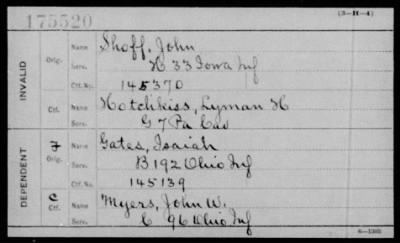 175520
(3-H-4)
INVALID
Orig.
Name Shoff, John
Serv. H 33 Iowa Inf
Ctf. No. 145370
Ctf.
Name Hotchkiss, Lyman H
Serv. G 7 Pa Cav
DEPENDENT
F
Orig.
Name Gates, Isaiah
Serv. B 192 Ohio Inf
Ctf. No. 145139
C
Ctf.
Name Myers, John W.
Serv. C 96 Ohio Inf